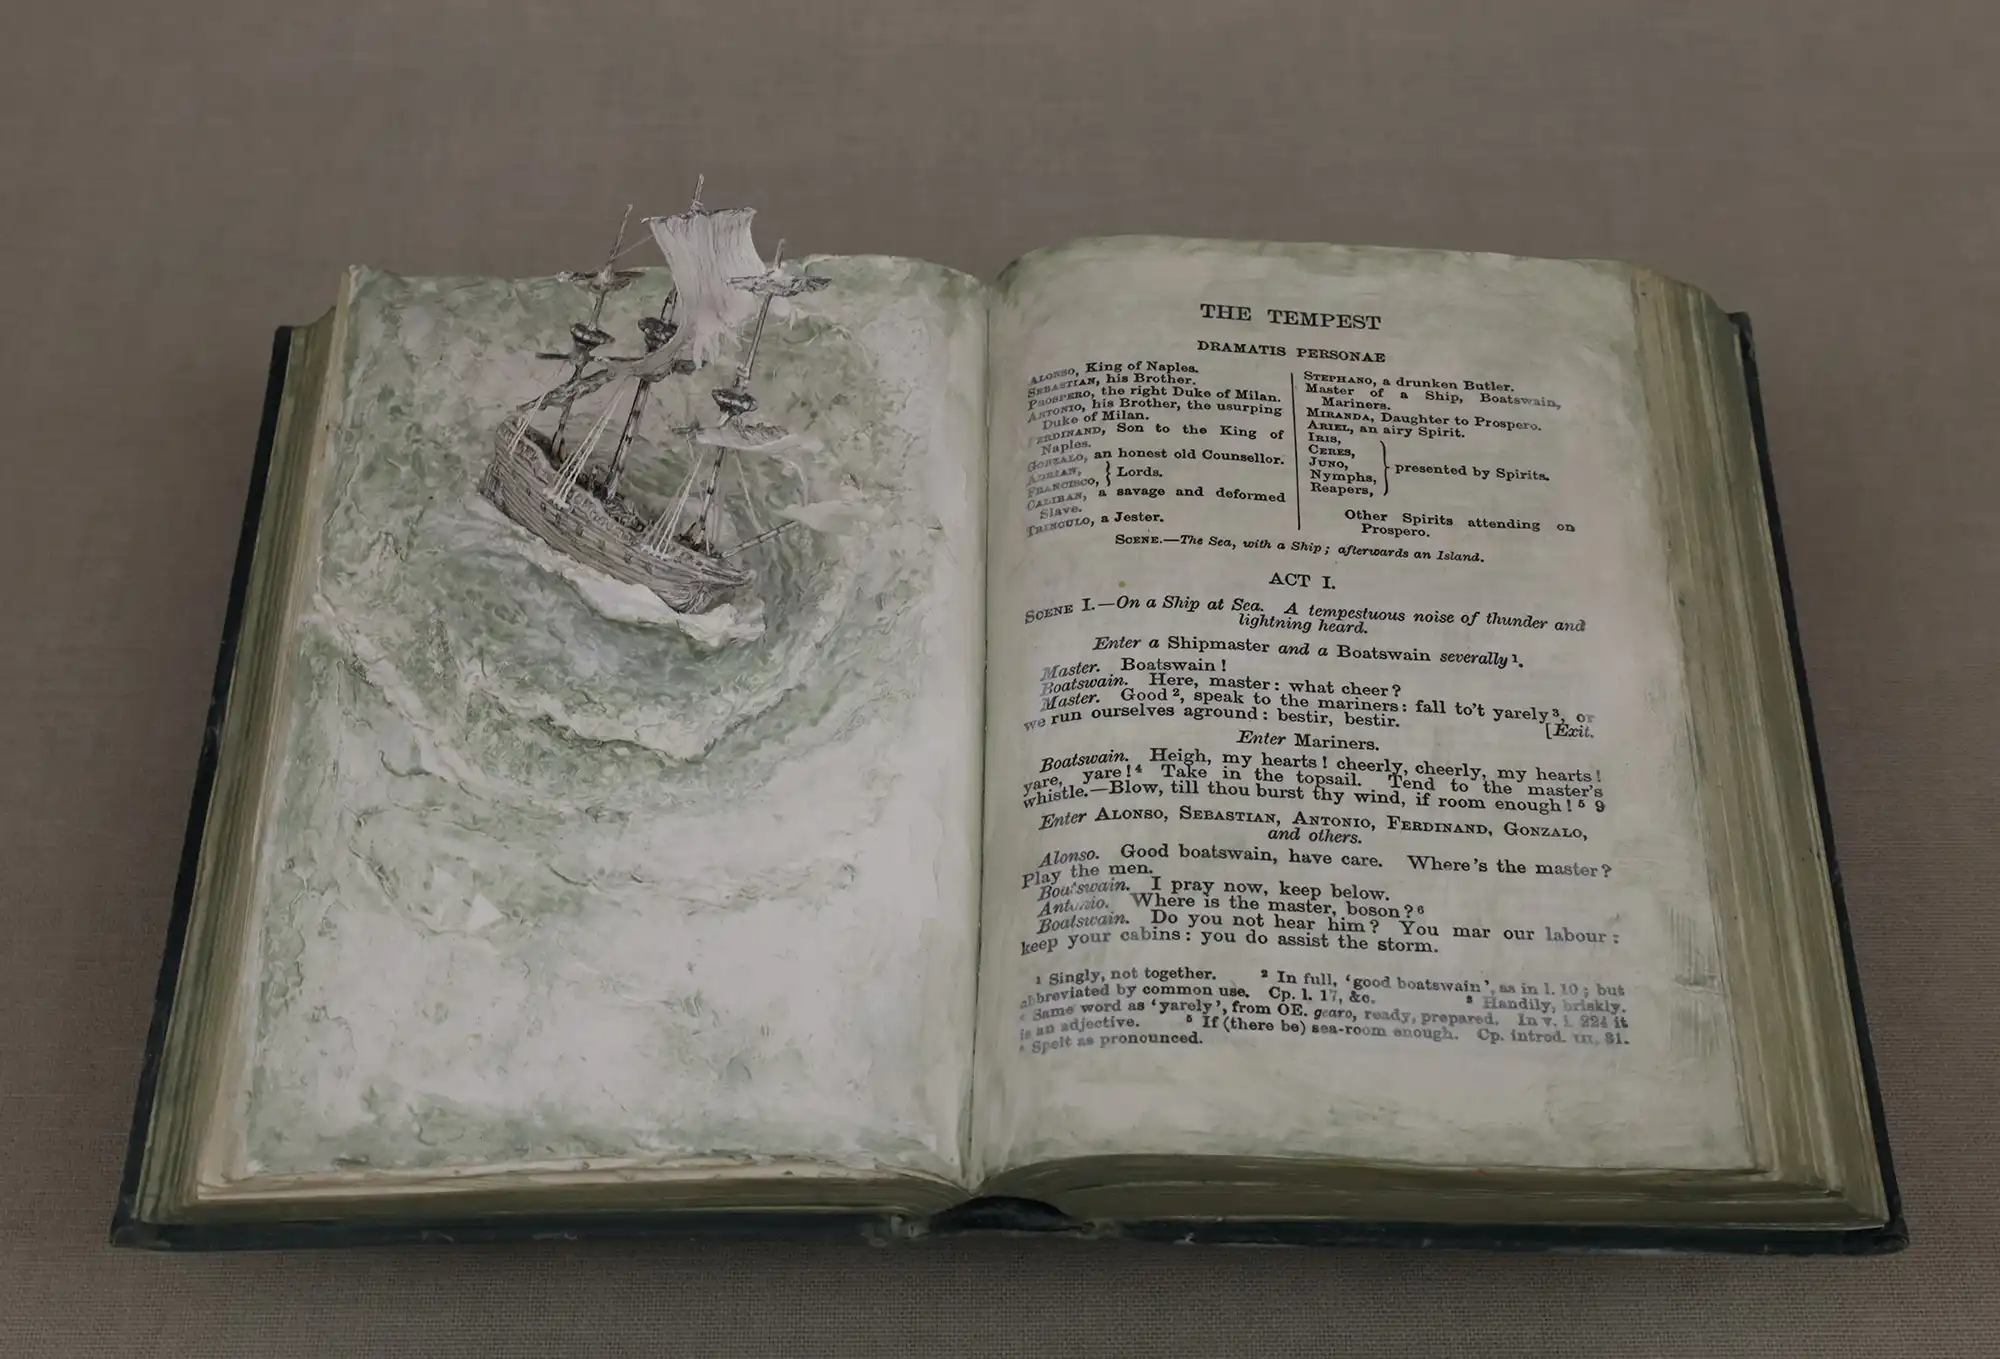 THE TEMPEST
DRAMATIS PERSONAE
ALONSO, King of Naples.
SEBASTIAN, his Brother.
PROSPERO, the right Duke of Milan.
ANTONIO, his Brother, the usurping
Duke of Milan.
FERDINAND, Son to the King of
Naples.
GONZALO, an honest old Counsellor.
ADRIAN,
FRANCISCO, } Lords.
CALIBAN, a savage and deformed
Slave.
TRINCULO, a Jester.
STEPHANO, a drunken Butler.
Master of a Ship, Boatswain,
Mariners.
MIRANDA, Daughter to Prospero.
ARIEL, an airy Spirit.
IRIS,
CERES,
JUNO, } presented by Spirits.
Nymphs,
Reapers,
Other Spirits attending on
Prospero.
SCENE.—The Sea, with a Ship; afterwards an Island.
ACT I.
SCENE I.—On a Ship at Sea. A tempestuous noise of thunder and
lightning heard.
Enter a Shipmaster and a Boatswain severally¹.
Master. Boatswain!
Boatswain. Here, master: what cheer?
Master. Good², speak to the mariners: fall to't yarely³, or
we run ourselves aground: bestir, bestir. [Exit.
Enter Mariners.
Boatswain. Heigh, my hearts! cheerly, cheerly, my hearts!
yare, yare!⁴ Take in the topsail. Tend to the master's
whistle.—Blow, till thou burst thy wind, if room enough!⁵ 9
Enter ALONSO, SEBASTIAN, ANTONIO, FERDINAND, GONZALO,
and others.
Alonso. Good boatswain, have care. Where's the master?
Play the men.
Boatswain. I pray now, keep below.
Antonio. Where is the master, boson?⁶
Boatswain. Do you not hear him? You mar our labour:
keep your cabins: you do assist the storm.
¹ Singly, not together. ² In full, 'good boatswain', as in l. 10; but
abbreviated by common use. Cp. l. 17, &c. ³ Handily, briskly.
⁴ Same word as 'yarely', from OE. gearo, ready, prepared. In v. i. 224 it
is an adjective. ⁵ If (there be) sea-room enough. Cp. introd. III, 31.
⁶ Spelt as pronounced.